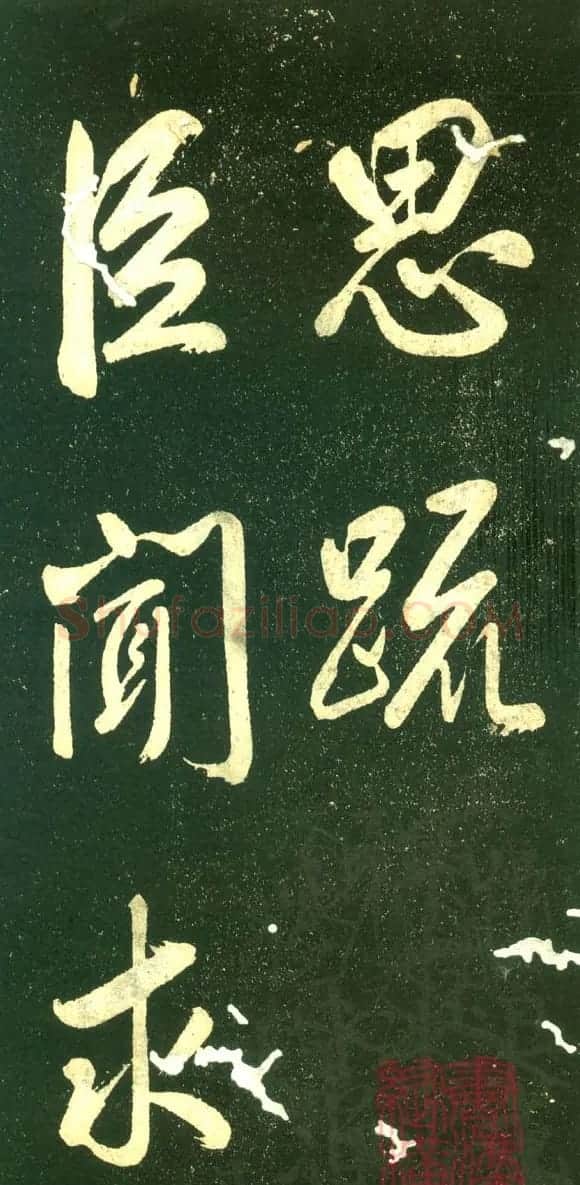 思䟽
臣聞求
Shufaziliao.COM